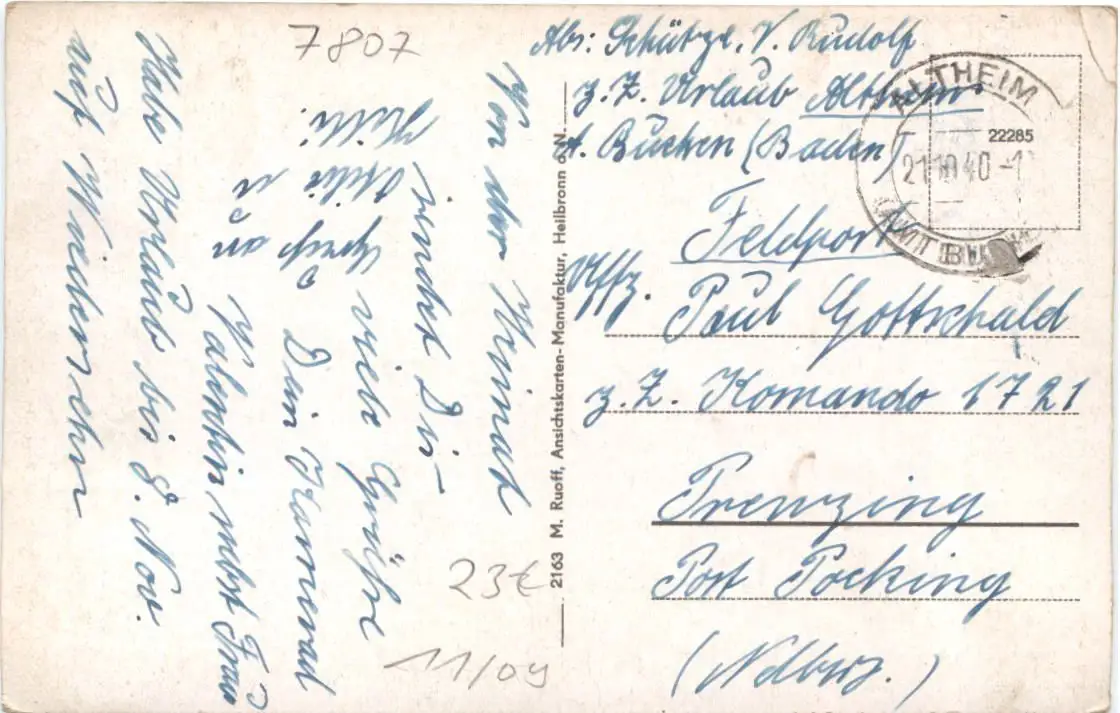 7807
Abs: Schütze. V. Rudolf
z. Z. Urlaub Altheim
A. Buchen (Baden)
ALTHEIM
22285
21.10.40 -1
(AMT BU
Feldpost
Uffz.
Paul Gottschald
z. Z. Komando 1721
Prenzing
Post Pocking
(Ndbrg.)
2163 M. Ruoff, Ansichtskarten-Manufaktur, Heilbronn a. N.
Von der Heimat
sendet Dir
viele Grüße
Dein Kamerad
Valentin nebst Frau
Habe Urlaub bis 8. Nov.
auf Wiedersehn
an
23€
11/09